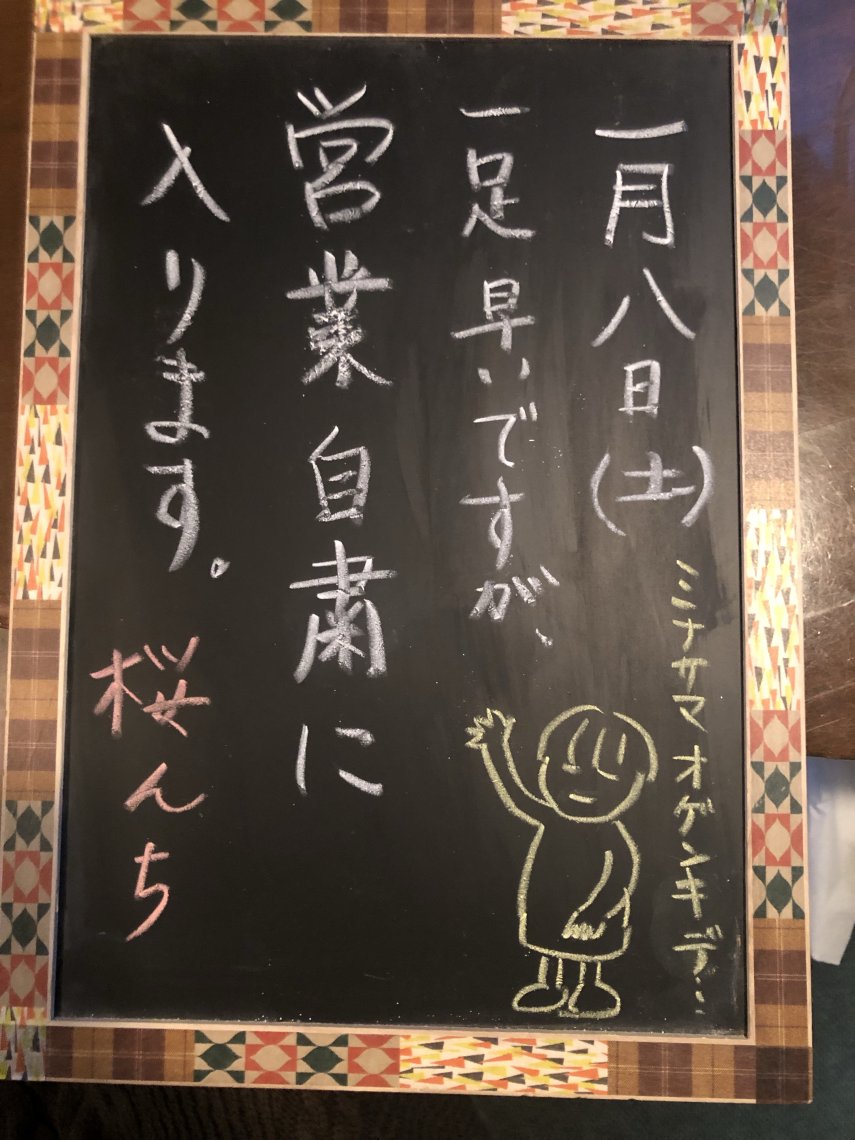 一月八日(土)
一足早いですが、
営業自粛に
入ります。
桜んち
ミナサマオゲンキデ…